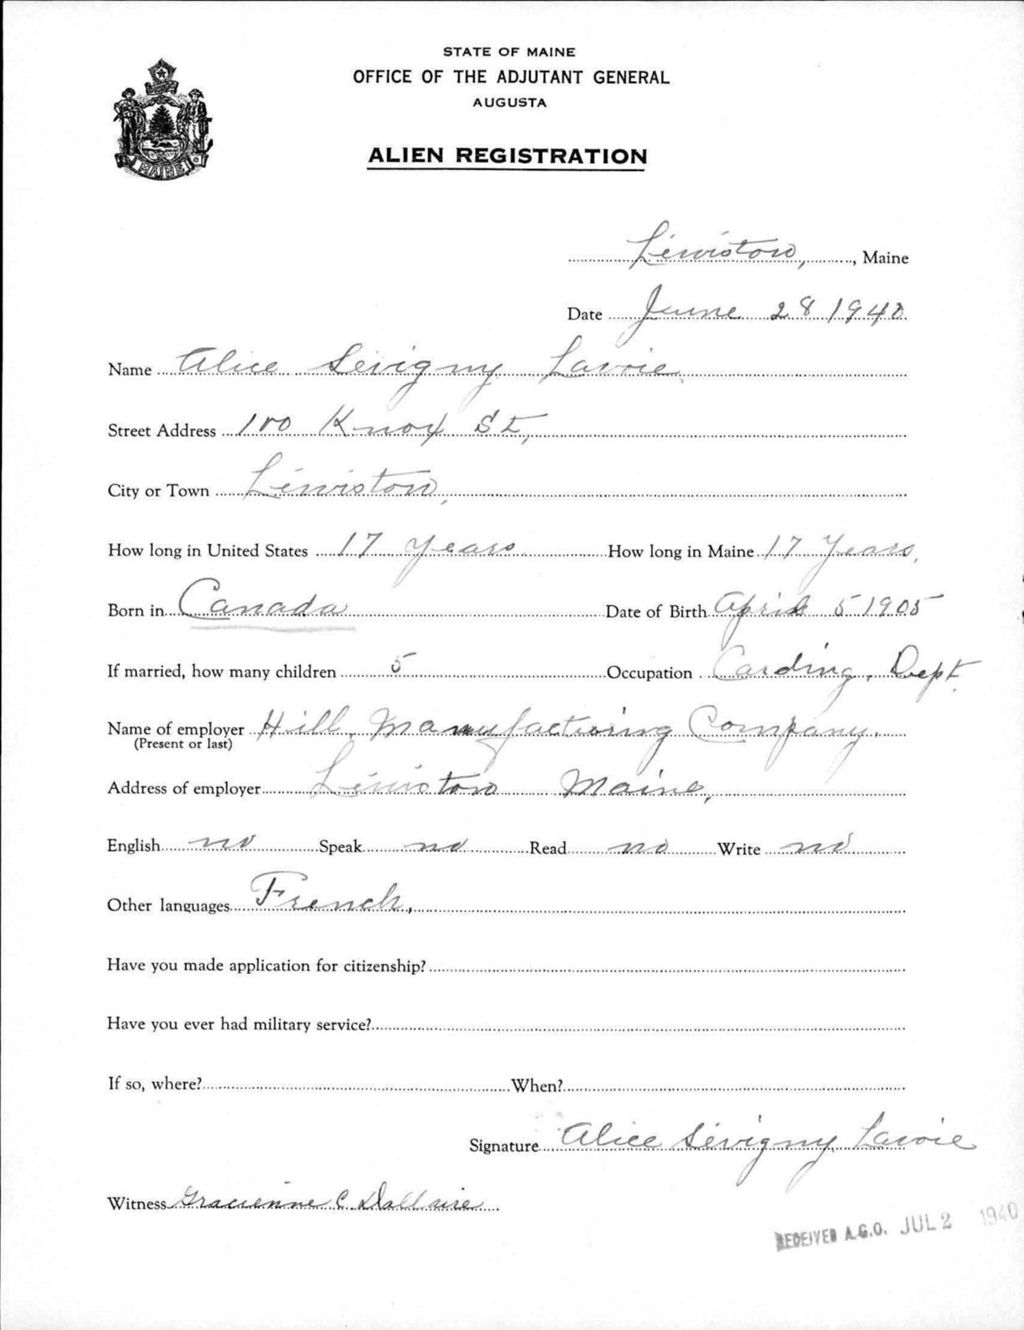 STATE OF MAINE
OFFICE OF THE ADJUTANT GENERAL
AUGUSTA
ALIEN REGISTRATION
MAINE
Lewiston, , Maine
Date June 28 1940
Name Alice Sévigny Lavoie
Street Address 100 Knox St,
City or Town Lewiston,
How long in United States 17 Years How long in Maine 17 Years,
Born in Canada Date of Birth April 5 1905
If married, how many children 5 Occupation Carding, Dept.
Name of employer Hill Manufactiring Company.
(Present or last)
Address of employer Lewiston Maine,
English no Speak no Read no Write no
Other languages French,
Have you made application for citizenship?
Have you ever had military service?
If so, where? When?
Signature Alice Sévigny Lavoie
Witness Gracienne C. Dallaire
RECEIVED A.G.O. JUL 2 1940